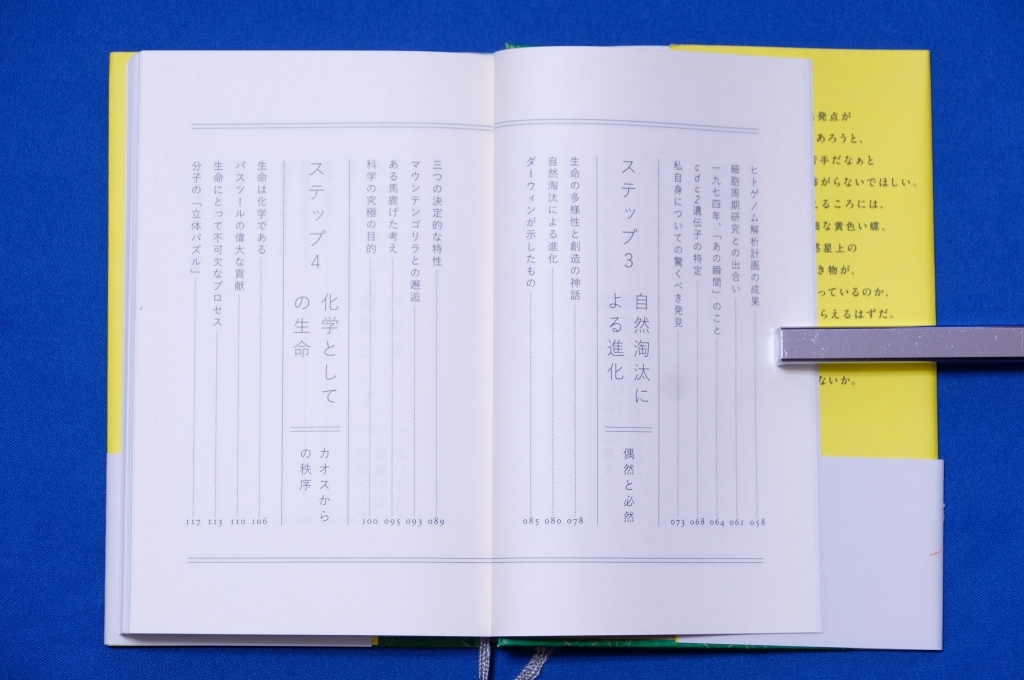 ヒトゲノム解析計画の成果 058
細胞周期研究との出合い 061
一九七四年、「あの瞬間」のこと 064
cdc2遺伝子の特定 068
私自身についての驚くべき発見 073
ステップ3
自然淘汰に
よる進化
偶然と必然
生命の多様性と創造の神話 078
自然淘汰による進化 080
ダーウィンが示したもの 085
三つの決定的な特性 089
マウンテンゴリラとの邂逅 093
ある馬鹿げた考え 095
科学の究極の目的 100
ステップ4
化学として
の生命
カオスから
の秩序
生命は化学である 106
パスツールの偉大な貢献 110
生命にとって不可欠なプロセス 113
分子の「立体パズル」 117
発点が
あろうと、
苦手だなぁと
がらないでほしい。
えるころには、
な黄色い蝶、
惑星上の
き物が、
っているのか、
らえるはずだ。
ないか。